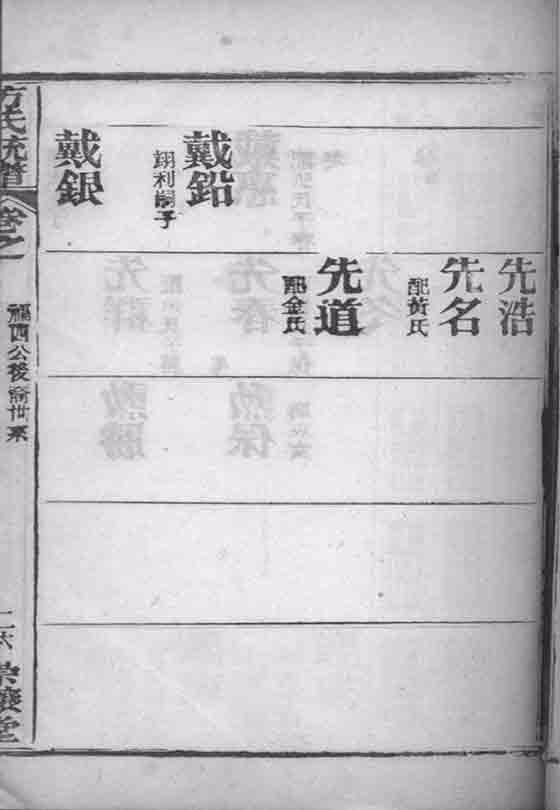 先浩
先名
配黃氏
先道
配金氏
戴鉛
翊利嗣子
戴銀
方氏統譜
卷之一
公後裔世系
二六
榮襄堂